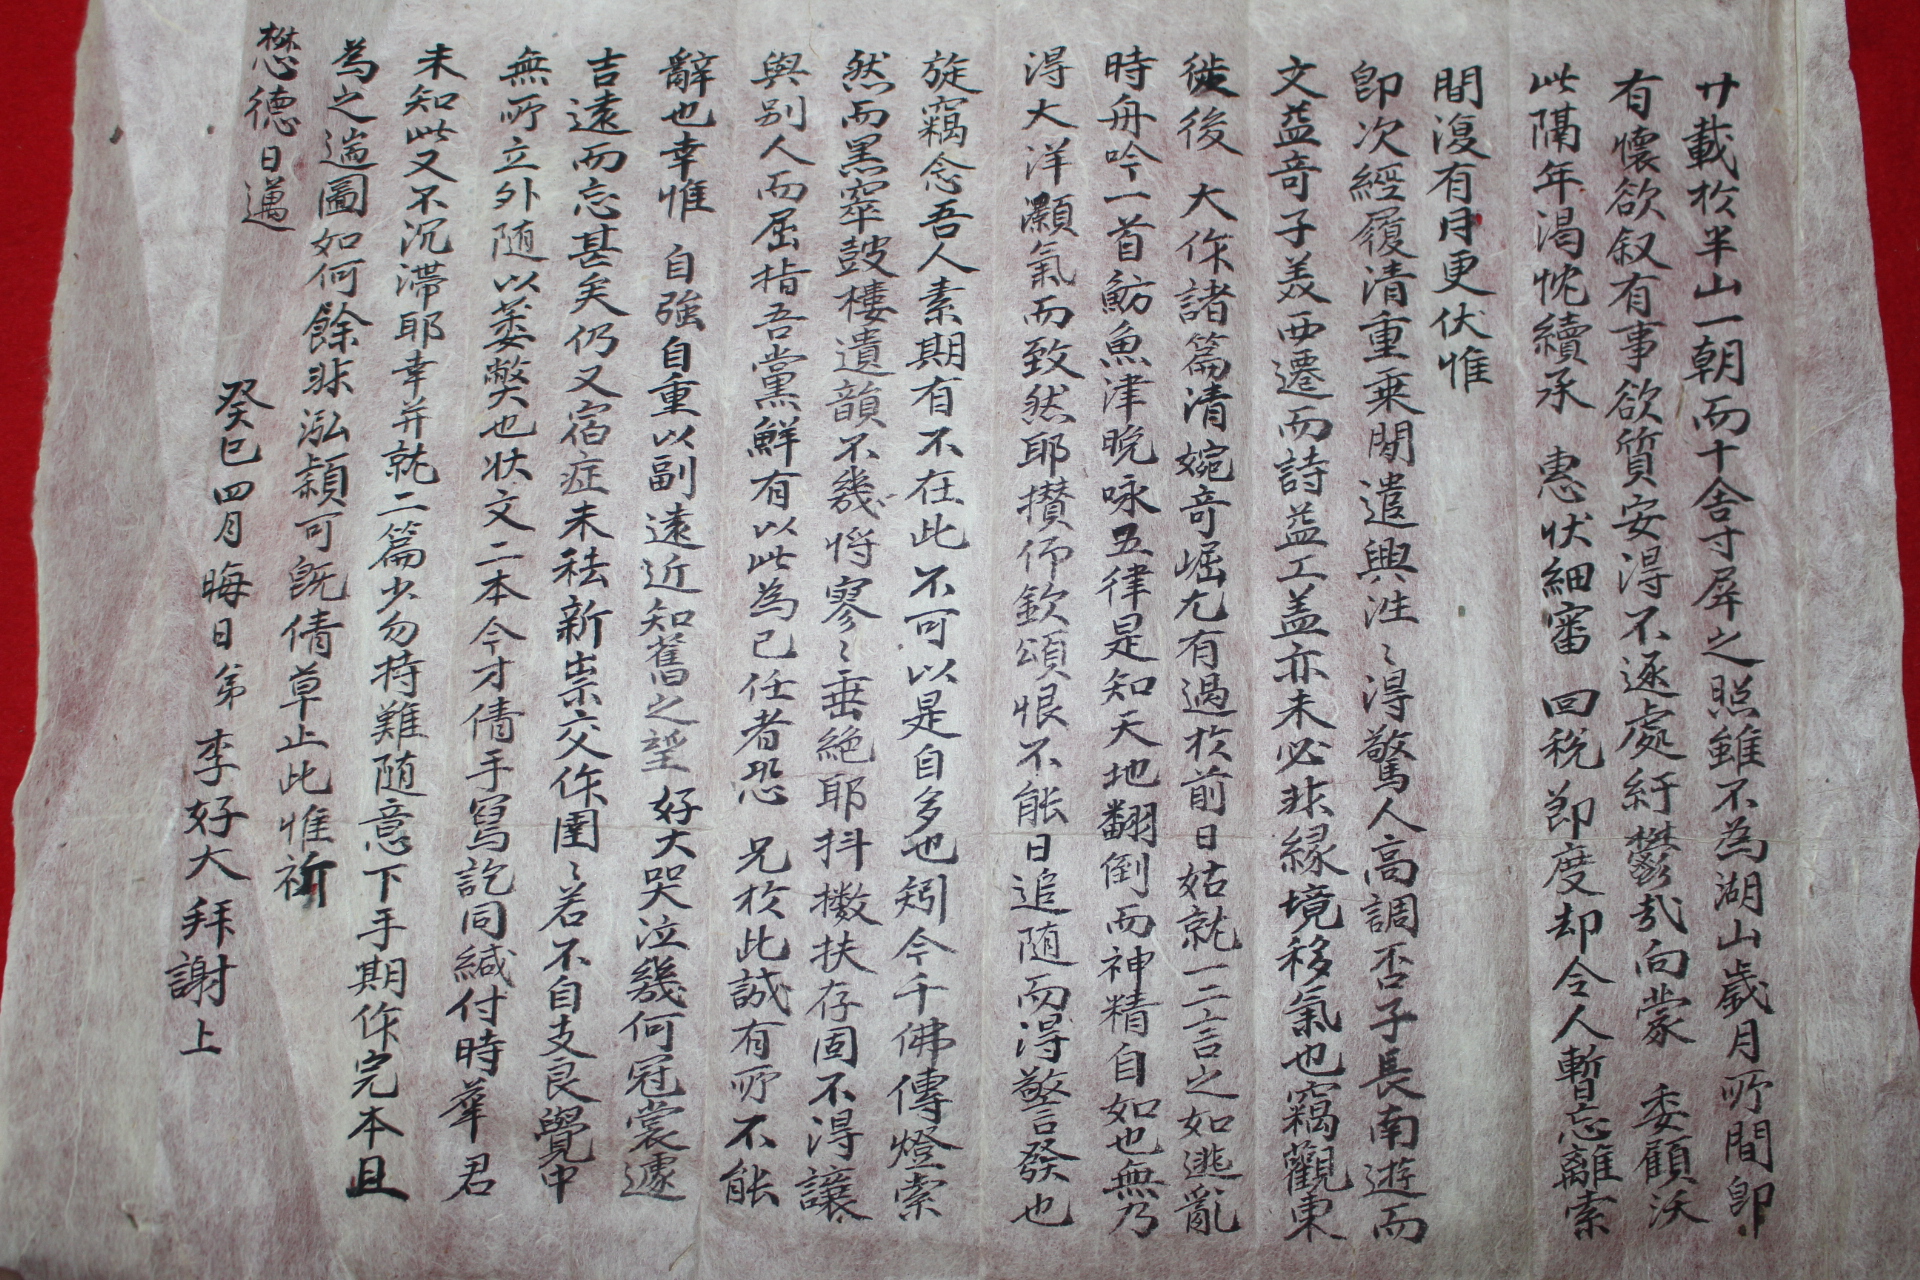 廿載於半山一朝而十舍寸犀之照雖不為湖山歲月所間卽
有懷欲叙有事欲質安得不逐處紆鬱哉向蒙 委顧沃
此隔年渴忱續承 惠狀細審 回稅節度却令人暫忘離索
間復有月更伏惟
卽次經履清重乘閒遣興泩〻得驚人高調否子長南遊而
文益奇子美西遷而詩益工盖亦未必非緣境移氣也竊觀東
徙後 大作諸篇清婉奇崛尤有過於前日姑就一二言之如逃亂
時舟吟一首魴魚津晩咏五律是知天地翻倒而神精自如也無乃
得大洋灝氣而致然耶攢仰欽頌恨不能日追隨而得警發也
旋竊念吾人素期有不在此不可以是自多也矧今千佛傳燈索
然而黑窣鼓樓遺韻不幾將寥〻垂絶耶抖擻扶存固不得讓
與別人而屈指吾黨鮮有以此為己任者恐 兄於此誠有所不能
辭也幸惟 自強自重以副遠近知舊之望 好大哭泣幾何冠裳遽
吉遠而忘甚矣仍又宿症未祛新祟交作圉〻若不自支良覺中
無所立外随以萎弊也狀文二本今才倩手寫訖同緘付時華君
未知此又不沉滯耶幸并就二篇少勿持難随意下手期作完本且
為之遄圖如何餘非泓穎可旣倩草止此惟祈
懋德日邁
癸巳四月晦日弟 李好大拜謝上